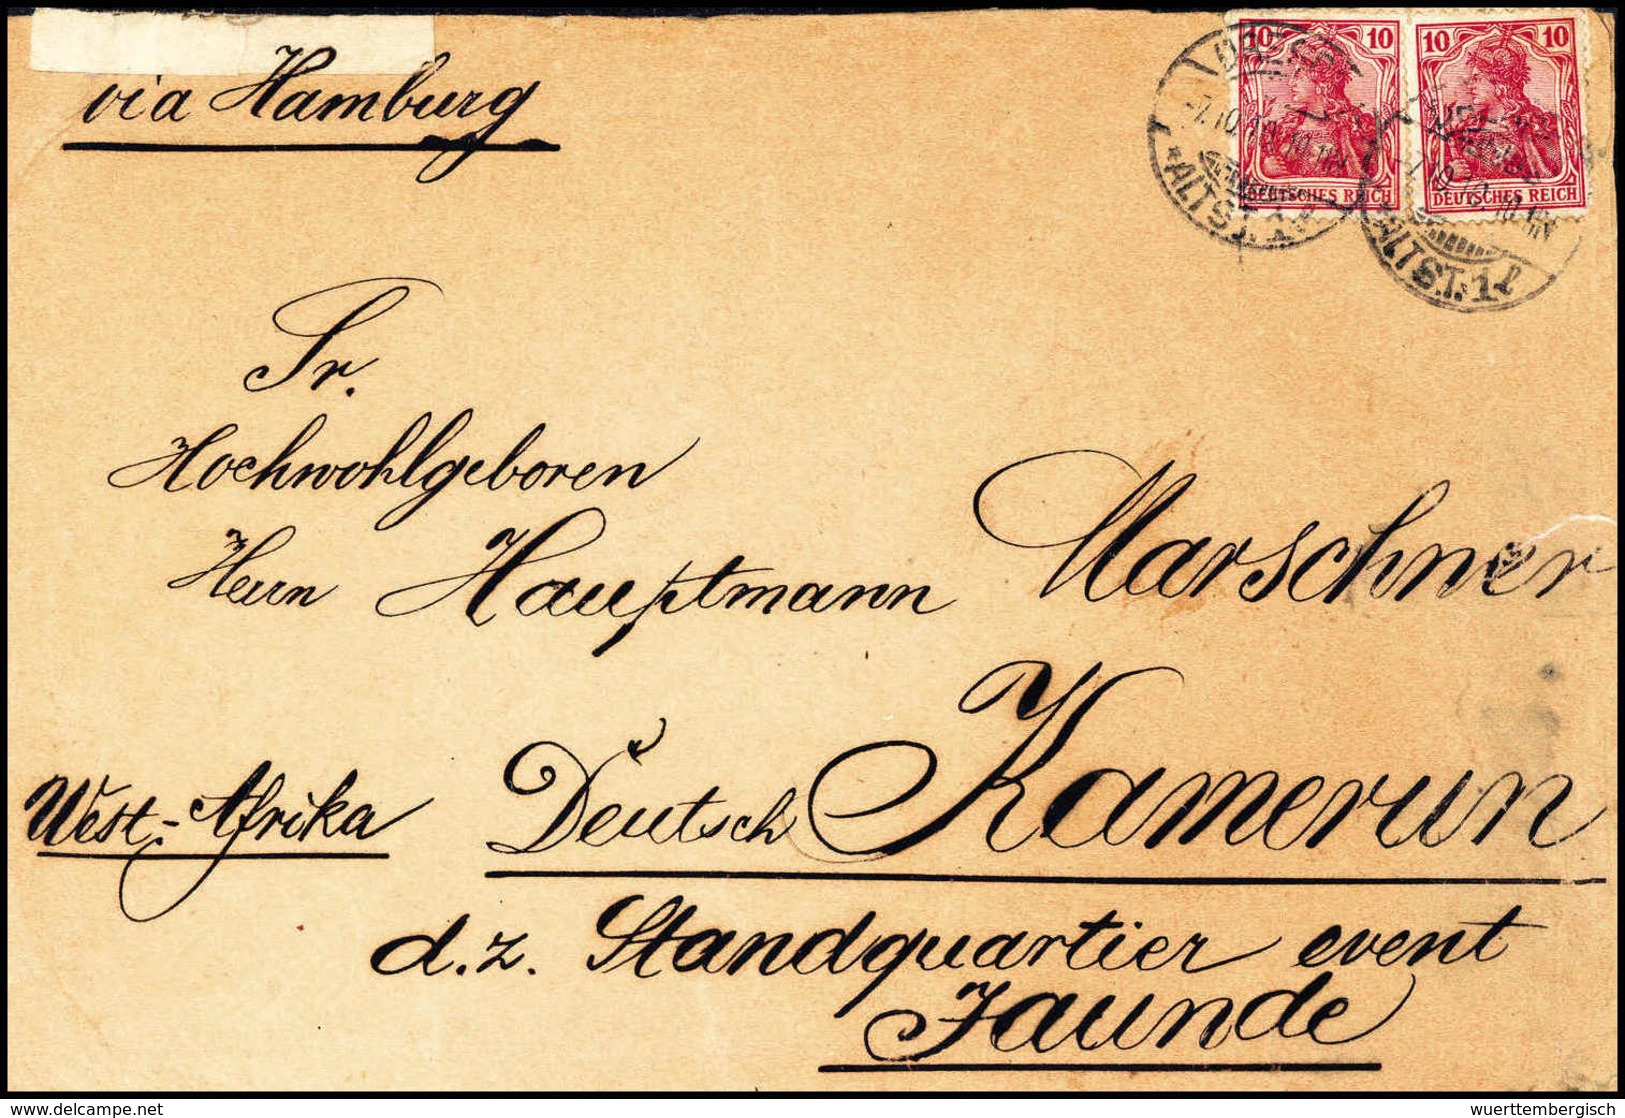 via Hamburg
10 10
DEUTSCHES REICH
10 10
DEUTSCHES REICH
7.10.10.10-11V.
* ALTST.
ALTST. 1 l
Sr.
Hochwohlgeboren
Herrn Hauptmann Marschner
West-Afrika Deutsch Kamerun
d.z. Standquartier event
Jaunde
Visit Delcampe.net
wuerttembergisch